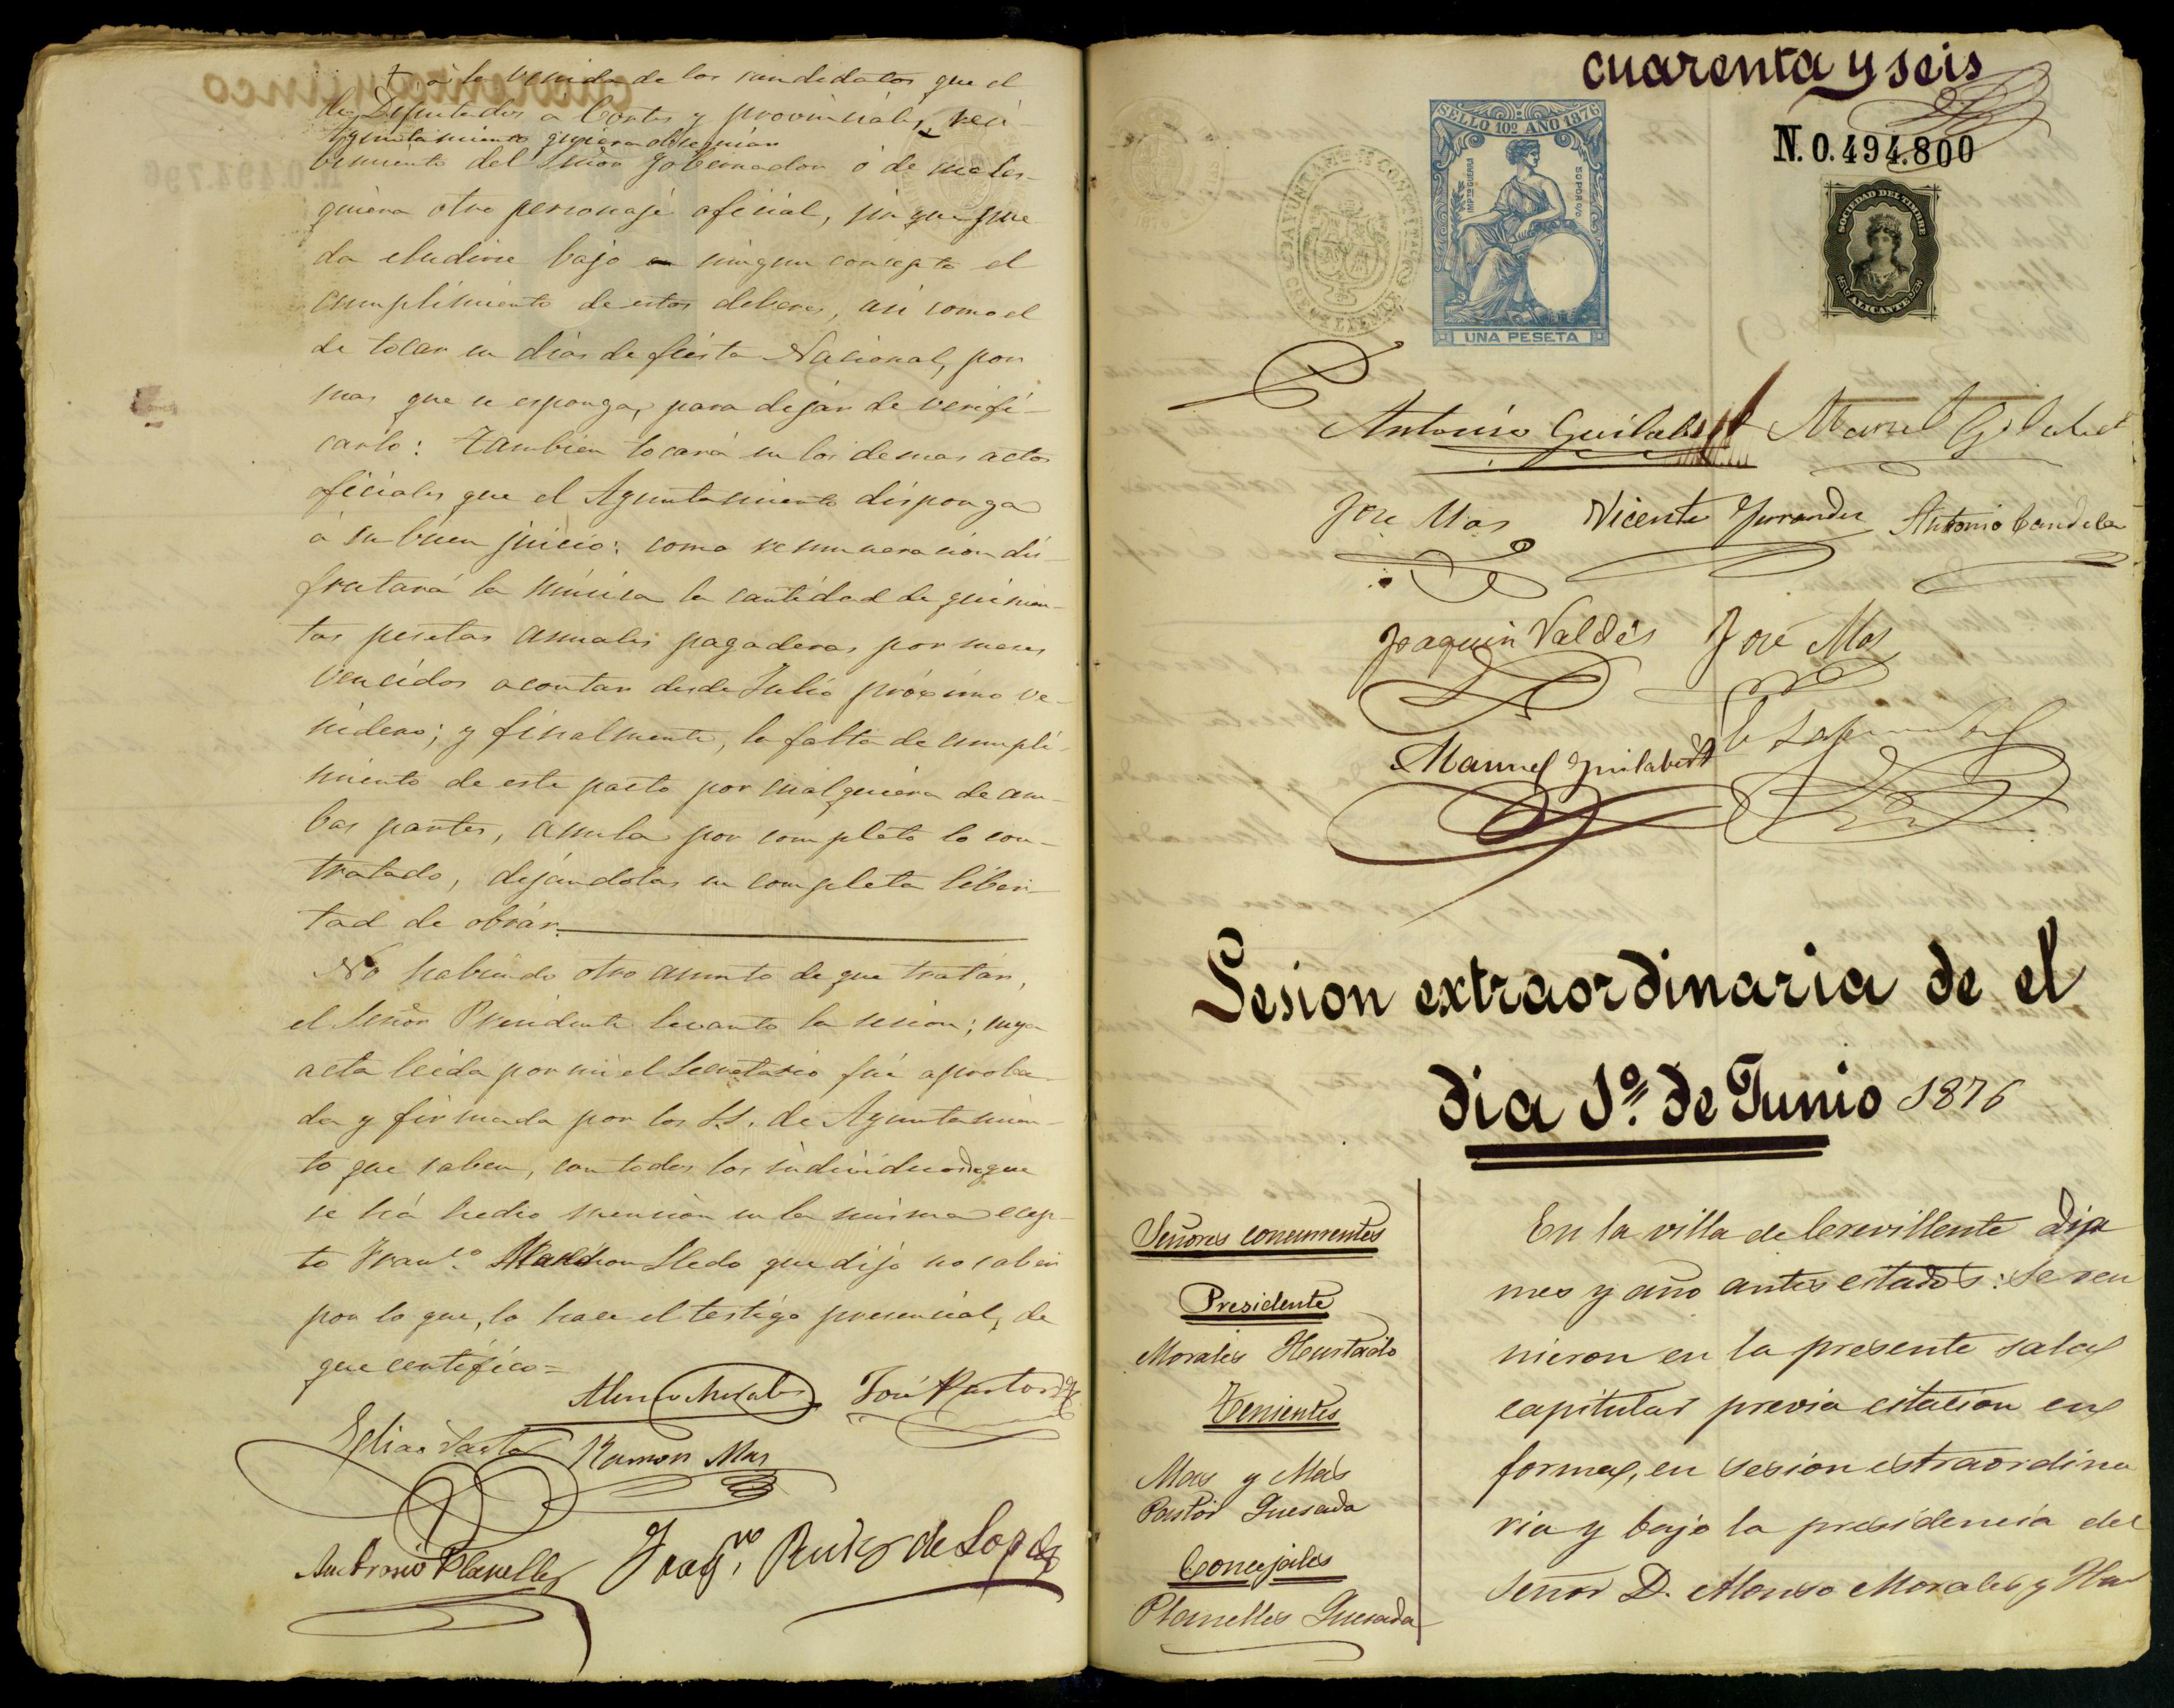 + á la venida de los candidatos que el
de Diputados á Cortes y provinciales, reci-
Ayuntamiento quiera obsequiar
bimiento del Señor Gobernador ó de cuales-
quiera otro personaje oficial, sin que pue
da eludirse bajo ningun concepto el
cumplimiento de estos deberes, asi como el
de tocar en dias de fiesta Nacional, por
mas que se esponga, para dejar de verifi-
carlo: Tambien tocará en los demas actos
oficiales que el Ayuntamiento disponga
á su buen juicio: como remuneracion dis-
frutará la música la cantidad de quinien-
tas pesetas anuales pagaderas por meses
vencidos acontar desde Julio próximo ve-
nidero; y finalmente, la falta de cumpli-
miento de este pacto por cualquiera de am-
bas partes, anula por completo lo con-
tratado, dejándolas en completa liber-
tad de obrár.
No habiendo otro asunto de que tratár,
el Señor Presidente levanto la sesion; cuya
acta leida por mi el Secretario fué aproba-
da y firmada por los S.S. de Ayuntamien-
to que saben, con todos los individuos de que
se há hecho mencion en la misma ecep-
to Fran.co Lledo que dijo no saber
por lo que, lo hace el testigo presencial, de
que certifico=
Alonso Morales José Pastor
Elias Ramon Mas
Ambrosio Planelles Joaq.no Ruiz de Lope
cuarenta y seis
SELLO 10º AÑO 1876
N. 0.494.800
UNA PESETA
SOCIEDAD DEL TIMBRE
ALICANTE
Antonio Guilabert Manuel Gilabert
Jose Mas Vicente Ferrandez Antonio Candela
Joaquin Valdés José Mas
Manuel Guilabert
Sesion extraordinaria de el
dia 1º de Junio 1876
Señores concurrentes
Presidente
Morales Hurtado
Tenientes
Mas y Mas
Pastor Quesada
Concejales
Planelles Quesada
En la villa de Crevillente dia
mes y año antes estados: Se reu
nieron en la presente sala
capitular previa citacion en
forma, en sesion estraordina
ria y bajo la presidencia del
Señor D. Alonso Morales y Hur